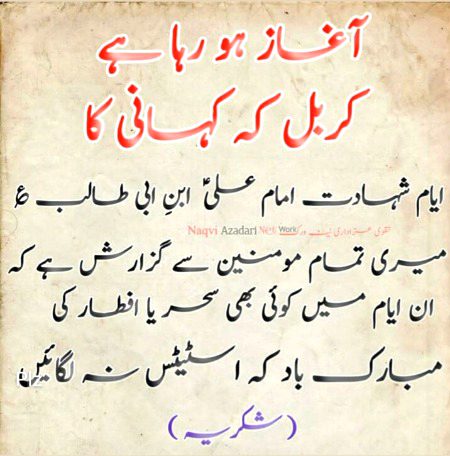 آغاز ہو رہا ہے
کربل کہ کہانی کا
ایام شہادت امام علیؑ ابنِ ابی طالب ع
Naqvi Azadari Net Work نقوی عزاداری نیٹ ورک
میری تمام مومنین سے گزارش ہے کہ
ان ایام میں کوئی بھی سحر یا افطار کی
مبارک باد کہ اسٹیٹس نہ لگائیں
(شکریہ)